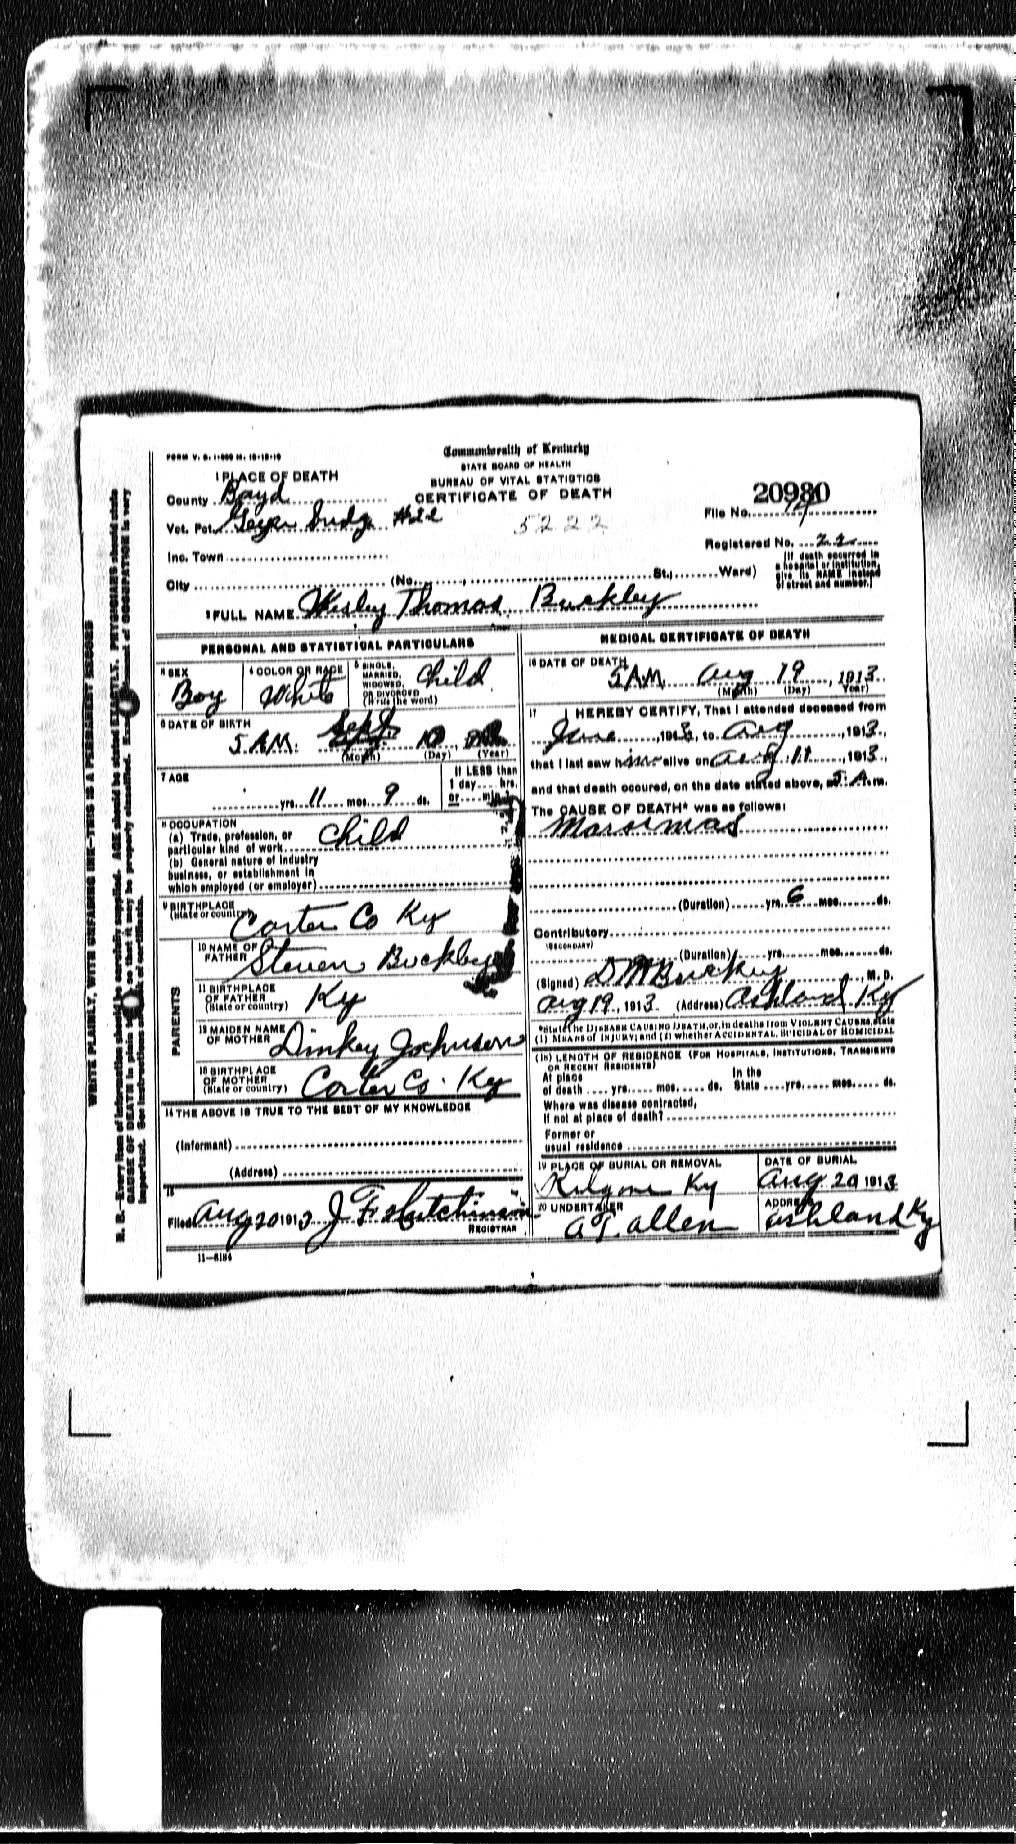 FORM V. S. 1-
Commonwealth of Kentucky
STATE BOARD OF HEALTH
BUREAU OF VITAL STATISTICS
CERTIFICATE OF DEATH
1 PLACE OF DEATH
County Boyd
Vot. Pct. #22
5222
20980
File No. 14
Registered No. 22
Inc. Town
City (No. , St.; Ward)
[If death occurred in
a hospital or institution,
give its NAME instead
of street and number.]
2 FULL NAME Wesley Thomas Buckley
PERSONAL AND STATISTICAL PARTICULARS
3 SEX
Boy
4 COLOR OR RACE
White
5 SINGLE,
MARRIED,
WIDOWED,
OR DIVORCED
(Write the word)
Child
6 DATE OF BIRTH
5 A.M. Sept 10
(Month) (Day) (Year)
7 AGE
yrs. 11 mos. 9 ds.
If LESS than
1 day hrs.
or min.?
8 OCCUPATION
(a) Trade, profession, or
particular kind of work Child
(b) General nature of industry
business, or establishment in
which employed (or employer)
9 BIRTHPLACE
(State or country)
Carter Co Ky
PARENTS
10 NAME OF
FATHER
Steven Buckley
11 BIRTHPLACE
OF FATHER
(State or country)
Ky
12 MAIDEN NAME
OF MOTHER
Dinkey Johnson
13 BIRTHPLACE
OF MOTHER
(State or country)
Carter Co. Ky
14 THE ABOVE IS TRUE TO THE BEST OF MY KNOWLEDGE
(Informant)
(Address)
15
Filed Aug 20 1913 J F Hutchinson
REGISTRAR
11-6184
MEDICAL CERTIFICATE OF DEATH
16 DATE OF DEATH
5 AM. Aug 19, 1913
(Month) (Day) Year)
17 I HEREBY CERTIFY, That I attended deceased from
June, 1913, to Aug, 1913,
that I last saw him alive on Aug 11, 1913,
and that death occured, on the date stated above, at 5 A.m.
The CAUSE OF DEATH* was as follows:
Marasmas
(Duration) yrs. 6 mos. ds.
Contributory
(SECONDARY)
(Duration) yrs. mos. ds.
(Signed) , M. D.
Aug 19, 1913. (Address) Ashland Ky
*State the DISEASE CAUSING DEATH, or, in deaths from VIOLENT CAUSES, state
(1) MEANS OF INJURY; and (2) whether ACCIDENTAL, SUICIDAL OR HOMICIDAL
(18) LENGTH OF RESIDENCE (FOR HOSPITALS, INSTITUTIONS, TRANSIENTS
OR RECENT RESIDENTS)
At place In the
of death yrs. mos. ds. State yrs. mos. ds.
Where was disease contracted,
If not at place of death?
Former or
usual residence
19 PLACE OF BURIAL OR REMOVAL
Kilgore Ky
DATE OF BURIAL
Aug 20 1913
20 UNDERTAKER
A.T. Allen
ADDRESS
Ashland Ky
WRITE PLAINLY, WITH UNFADING INK—THIS IS A PERMANENT RECORD
N. B.—Every item of information should be carefully supplied. AGE should be stated EXACTLY. PHYSICIANS should state
CAUSE OF DEATH in plain so that it may be properly classified. Exact of OCCUPATION is very
important. See instructions on back of certificate.